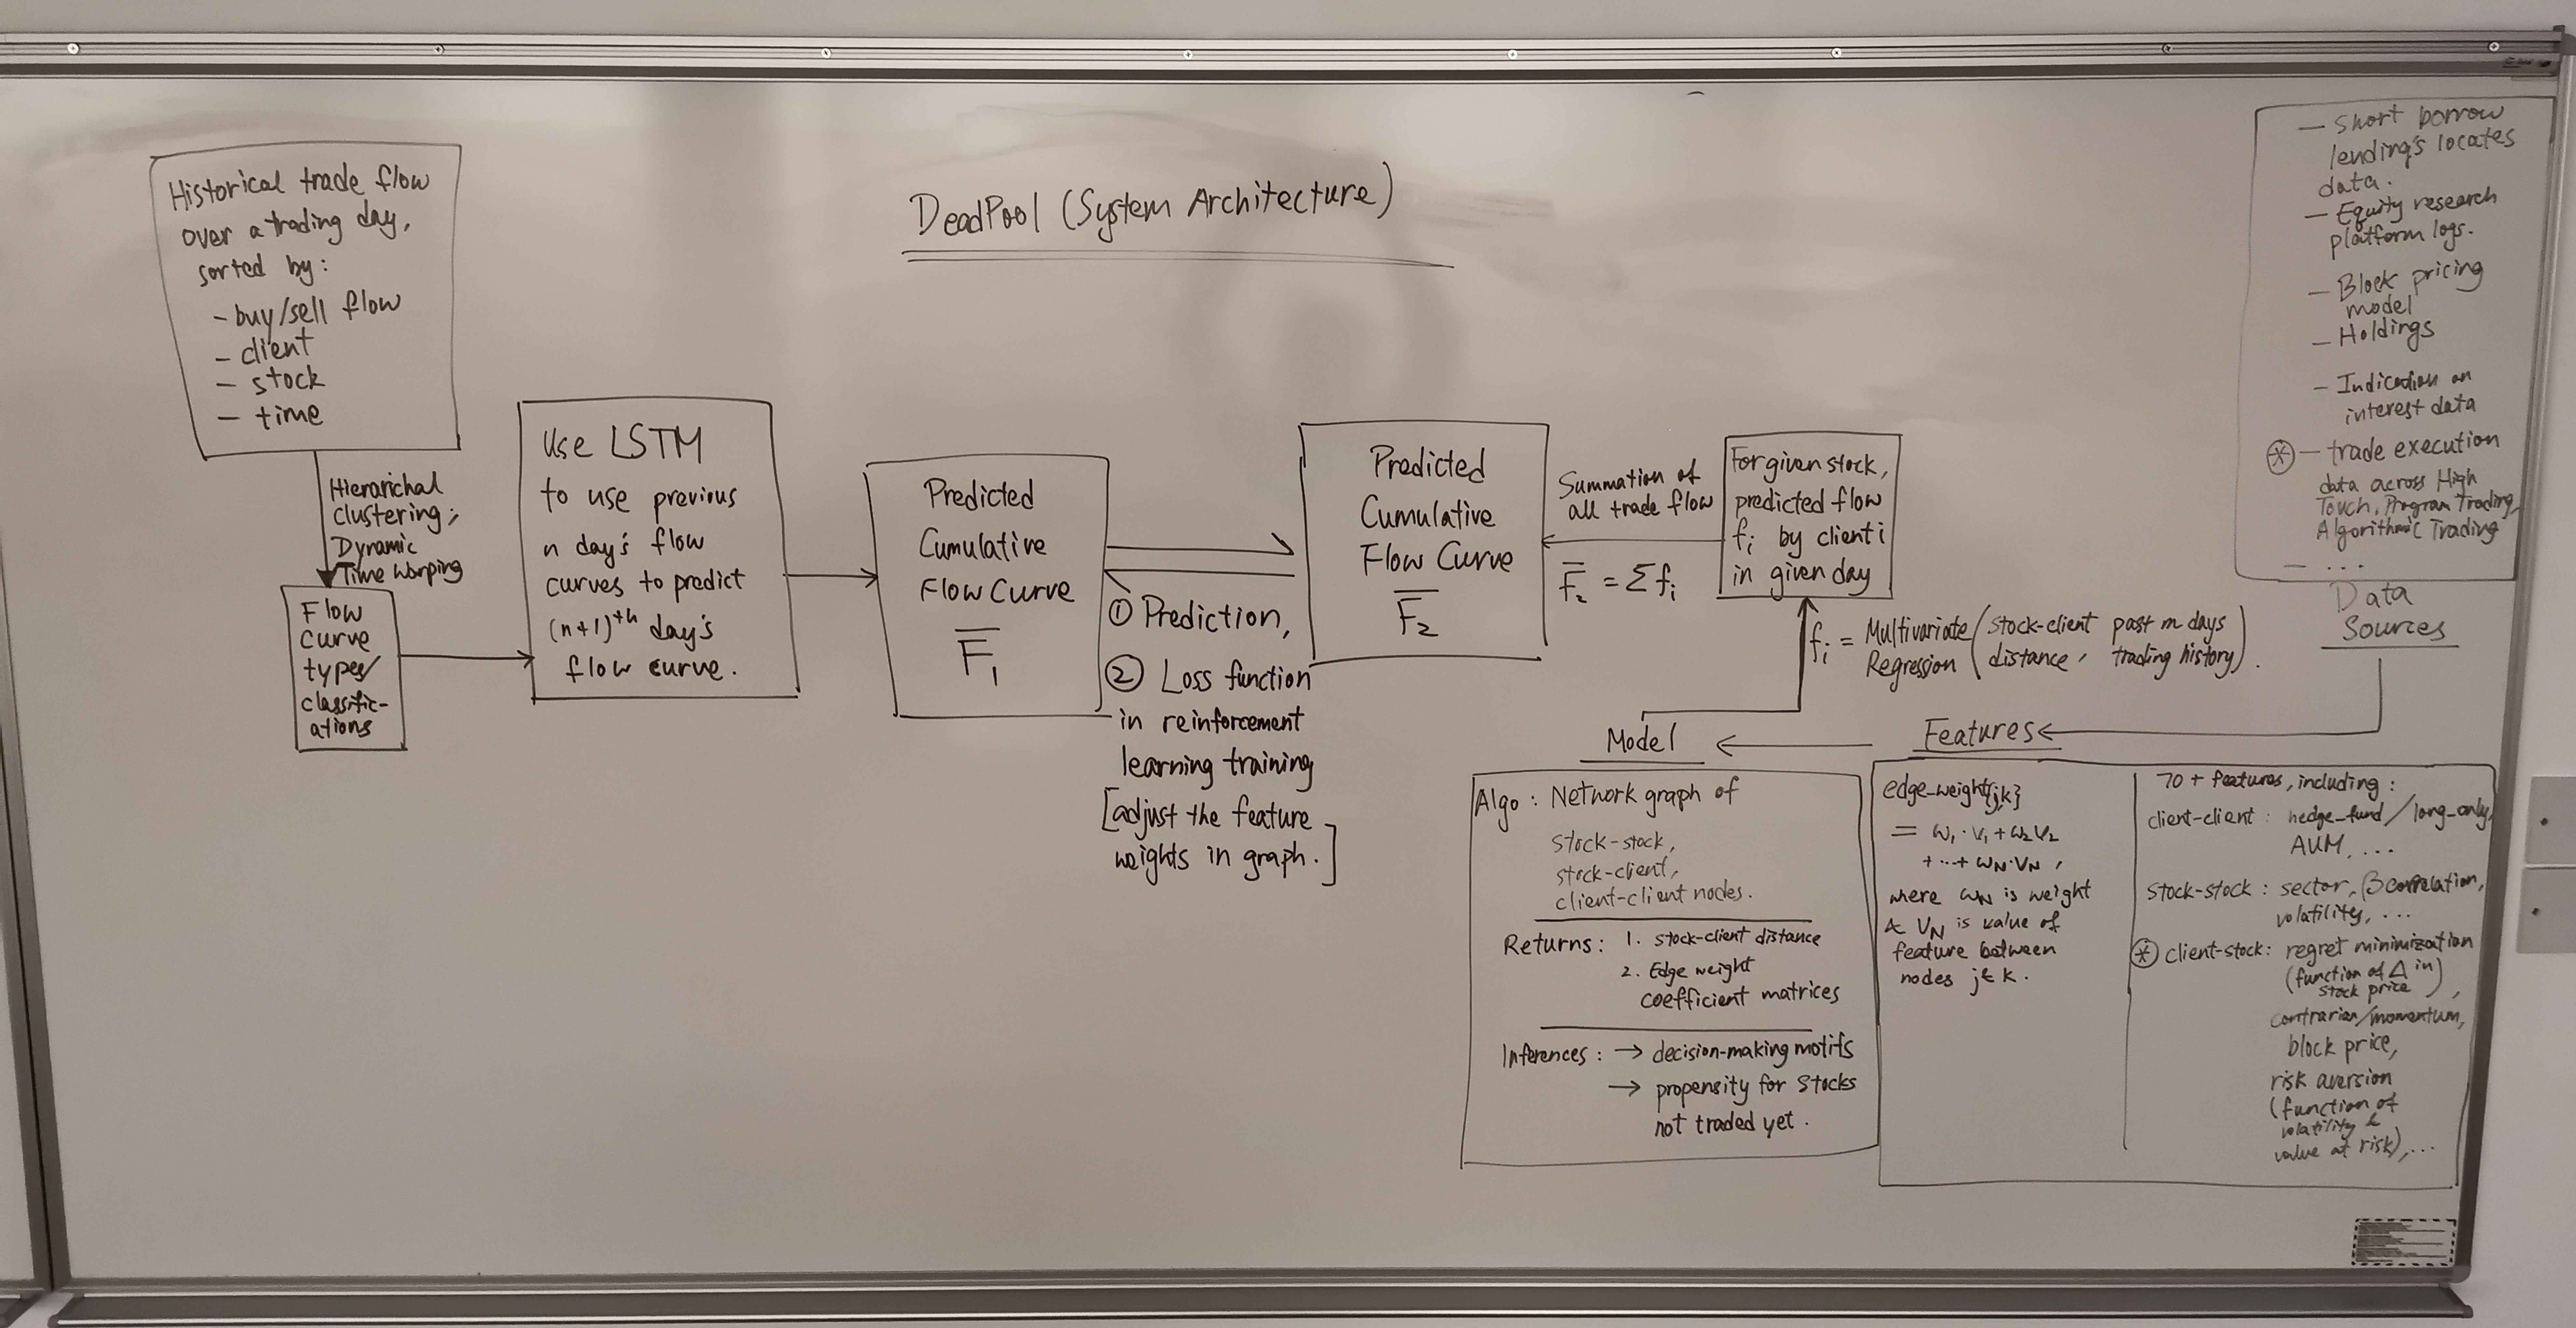 DeadPool (System Architecture)
Historical trade flow
over a trading day,
sorted by:
- buy/sell flow
- client
- stock
- time
Hierarichal
clustering;
Dynamic
Time Warping
Flow
Curve
types/
classific-
ations
Use LSTM
to use previous
n day's flow
curves to predict
(n+1)ᵗʰ day's
flow curve.
Predicted
Cumulative
Flow Curve
F̅₁
① Prediction,
② Loss function
in reinforcement
learning training
[adjust the feature
weights in graph.]
Predicted
Cumulative
Flow Curve
F̅₂
Summation of
all trade flow
F̅₂ = Σfᵢ
For given stock,
predicted flow
fᵢ by client i
in given day
fᵢ = Multivariate Regression (stock-client distance, past m days trading history).
- Short borrow
lending's locates
data.
- Equity research
platform logs.
- Block pricing
model
- Holdings
- Indication on
interest data
⊛ - trade execution
data across High
Touch, Program Trading,
Algorithmic Trading
- ...
Data
Sources
Features
edge_weight{jk}
= ω₁·V₁ + ω₂V₂
+ ··· + ωN·VN,
where ωN is weight
& VN is value of
feature between
nodes j & k.
70+ features, including:
client-client: hedge_fund/long_only,
AUM, ...
stock-stock: sector, β correlation,
volatility, ...
⊛ client-stock: regret minimization
(function of Δ in
stock price),
contrarian/momentum,
block price,
risk aversion
(function of
volatility &
value at risk), ...
Model
Algo: Network graph of
stock-stock,
stock-client,
client-client nodes.
Returns: 1. stock-client distance
2. Edge weight
coefficient matrices
Inferences: → decision-making motifs
→ propensity for stocks
not traded yet.